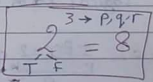 3 → p, q, r
2 = 8
T F